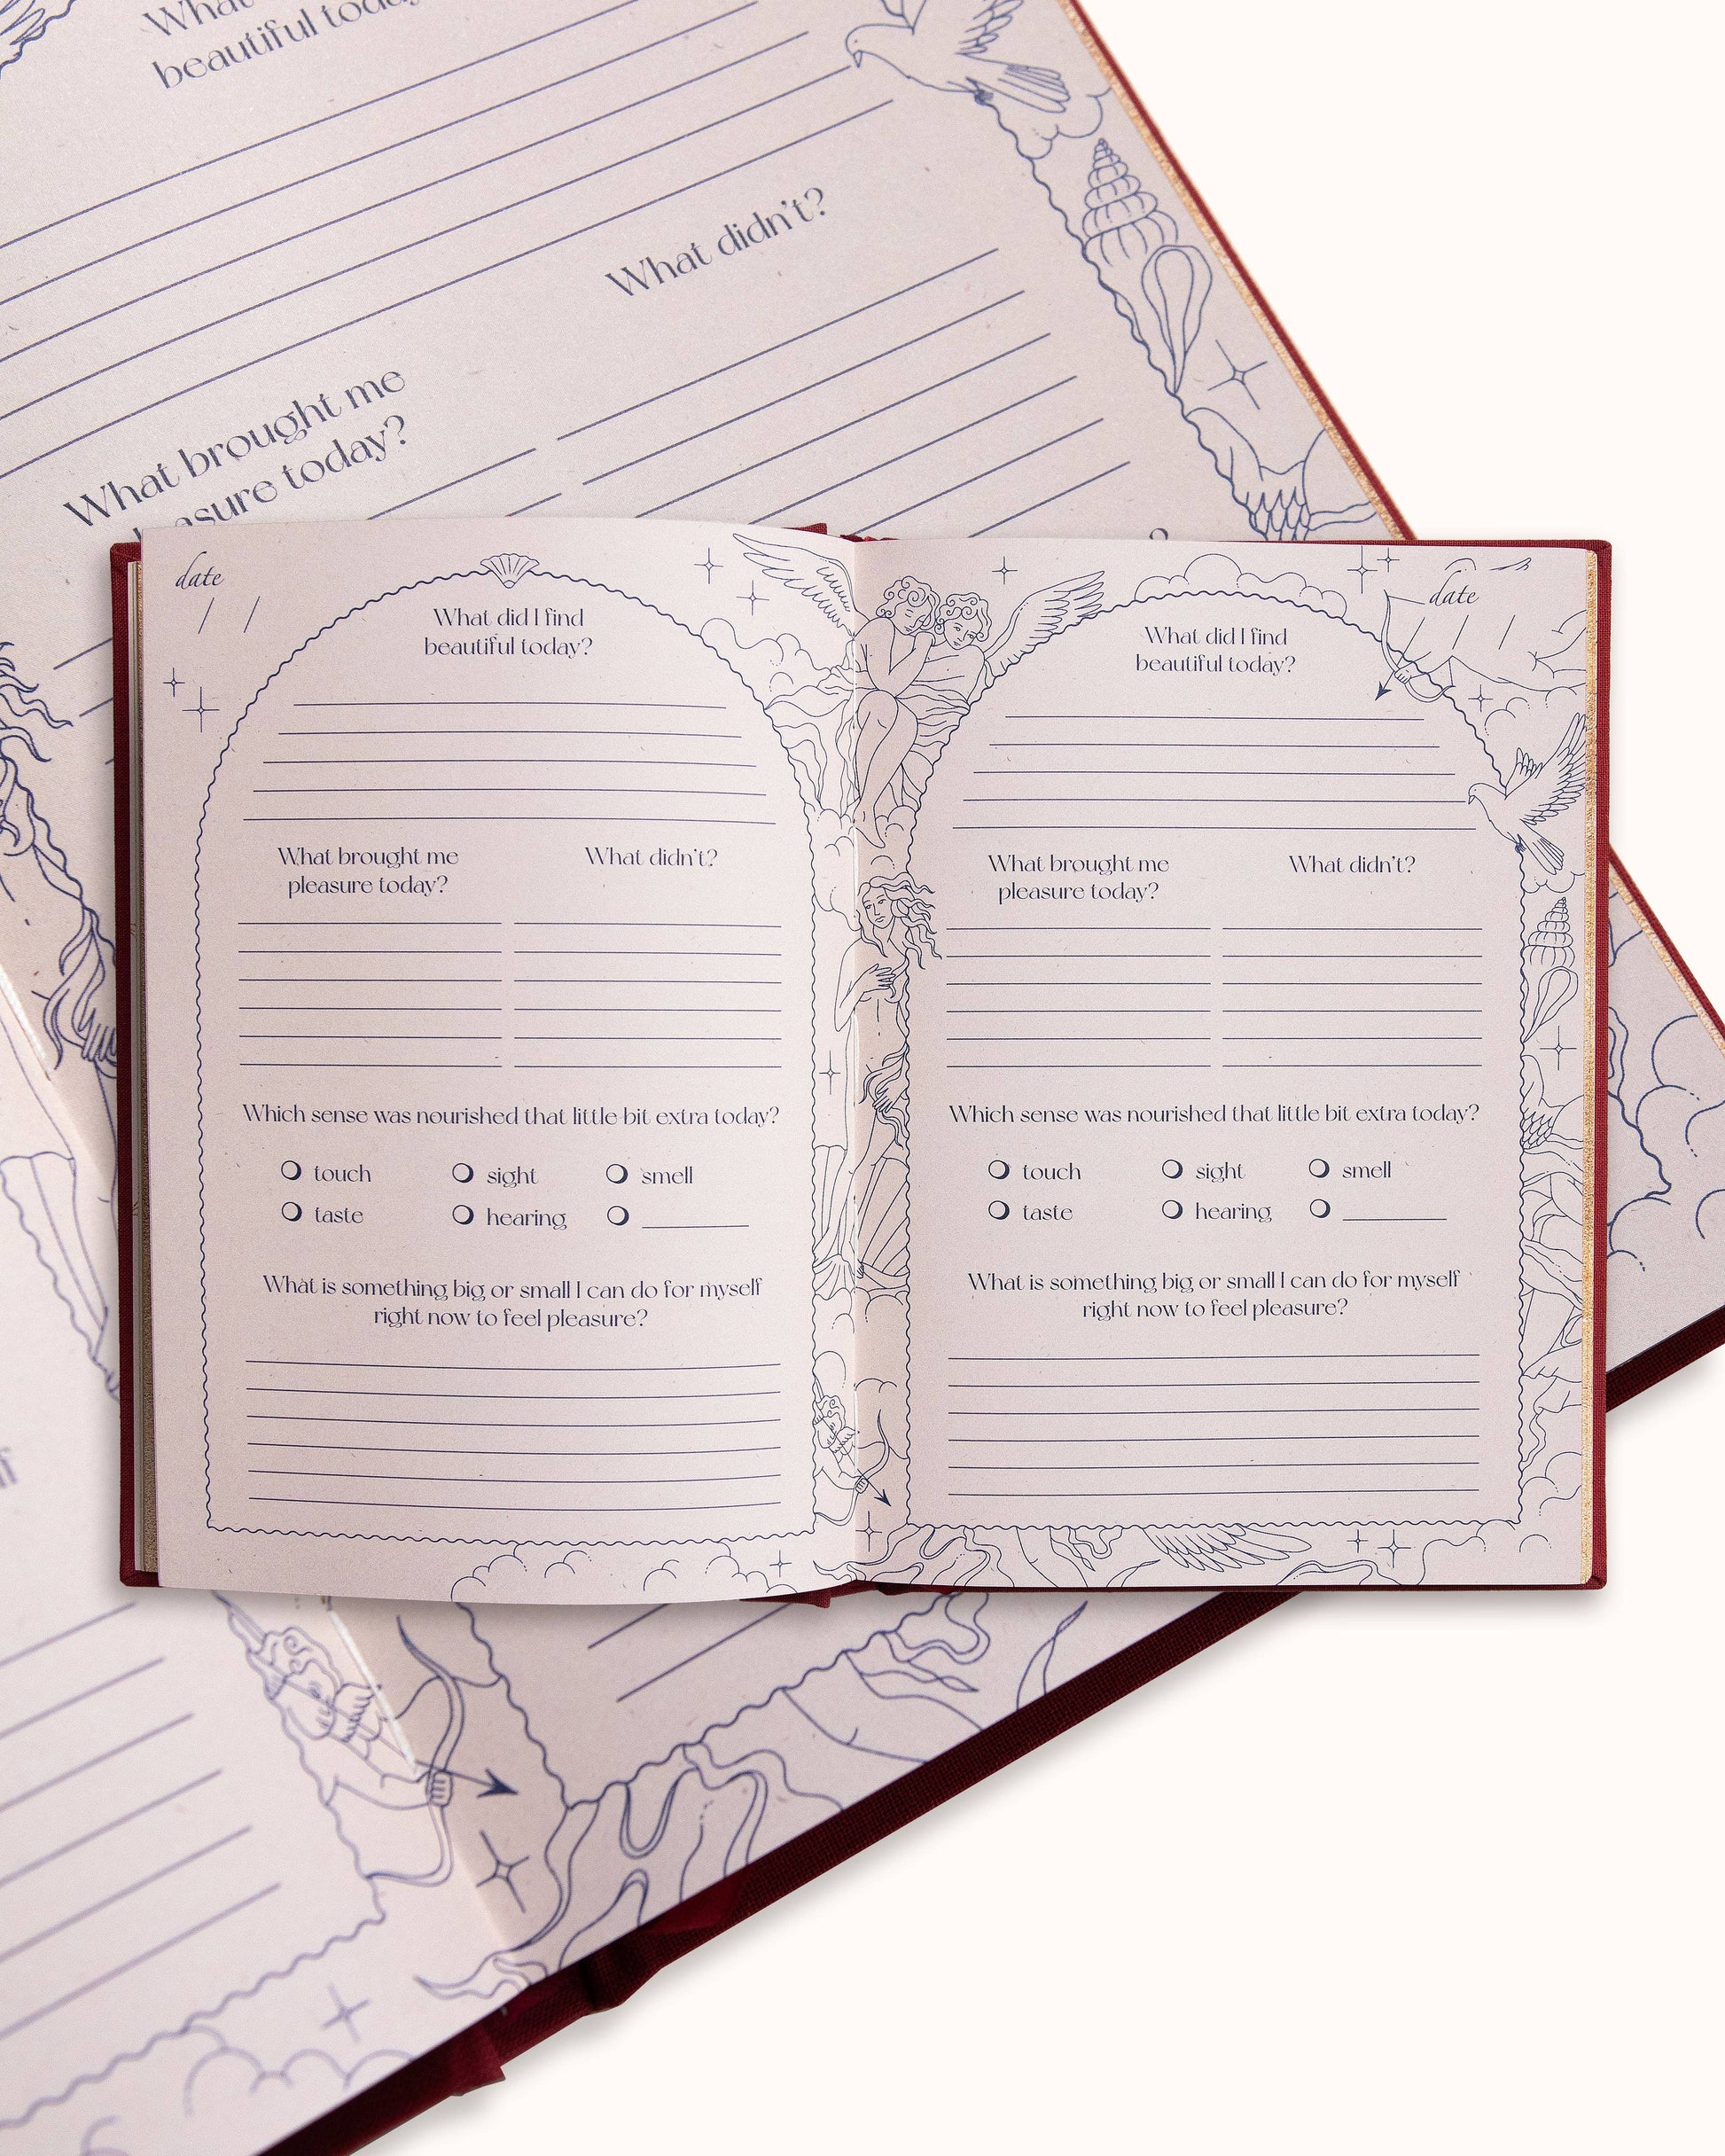 beautiful today
What didn't?
What brought me
pleasure today?
date
/ /
What did I find
beautiful today?
What brought me
pleasure today?
What didn't?
Which sense was nourished that little bit extra today?
touch sight smell
taste hearing
What is something big or small I can do for myself
right now to feel pleasure?
date
/ / /
What did I find
beautiful today?
What brought me
pleasure today?
What didn't?
Which sense was nourished that little bit extra today?
touch sight smell
taste hearing
What is something big or small I can do for myself
right now to feel pleasure?